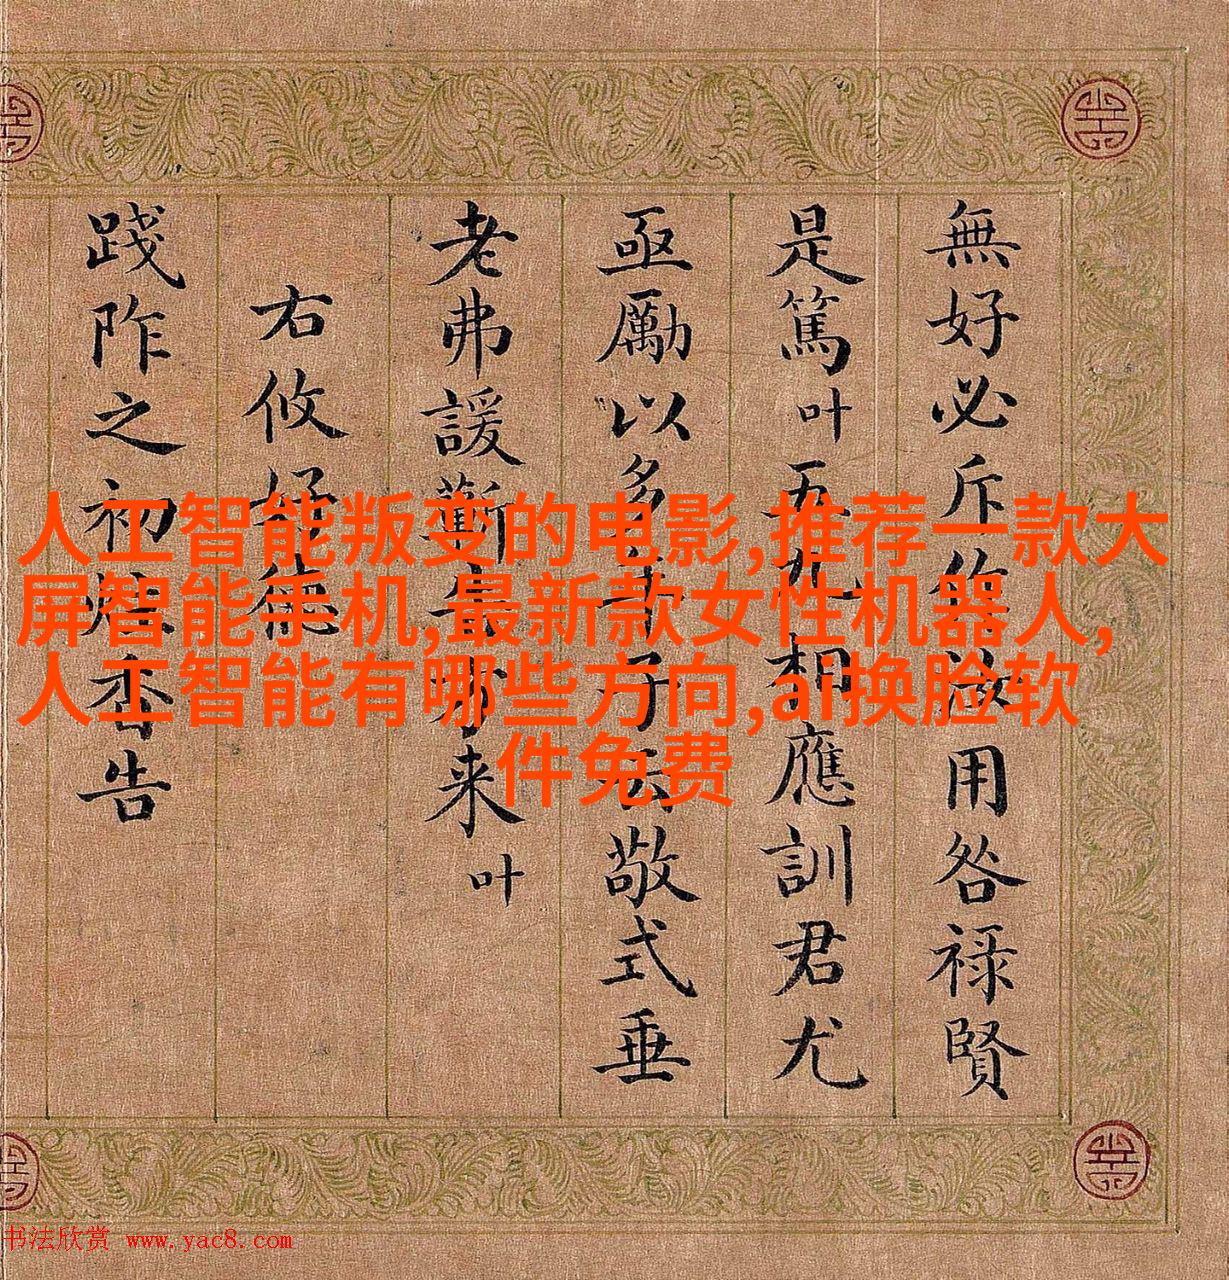 無好必斥作用咎禄賢
是篤叶五九相應訓君尤
亟勵以多子敬式垂
老弗諼蘄来叶
右攸好德
踐阼之初炷香告
人工智能叛变的电影,推荐一款大
屏智能手机,最新款女性机器人,
人工智能有哪些方向,ai换脸软
件免费
书法欣赏 www.yac8.com